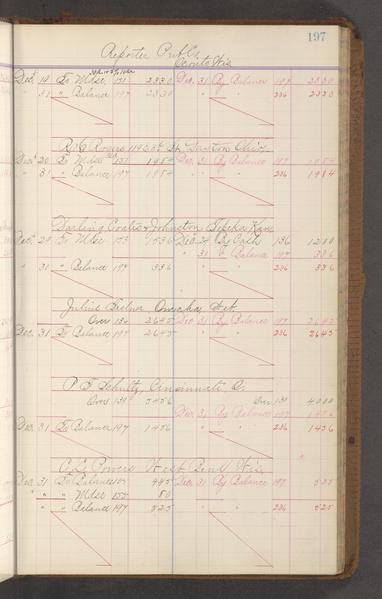 197
Reporter Pub Co.
Wis
Dec. 19 To Mdse 2330 Dec. 31 By Balance 197 2330
31 " Balance 197 2330 " " 206 2330
St. Dayton Ohio
20 To Mdse 1984 Dec. 31 By Balance 197 1984
" 31 " Balance 197 1984 " " 206 1984
Darling Coates & Johnston Topeka Kan
29 To Mdse 173 1536 Dec. 24 By Cash 136 1200
" 31 " Balance 197 336
" 31 " Balance 197 336 " " 206 336
Julius Festner Omaha Neb.
Over 134 2645 Dec. 31 By Balance 197 2645
Dec. 31 To Balance 197 2645 " " 206 2645
P. F. Schultz, Cincinnati O.
Over 139 5456 Over 139 4000
Dec. 31 By Balance 197 1456
Dec. 31 To Balance 197 1456 " " 206 1456
C. L. Powers West Bend Wis.
Dec. 31 To Balance 445 Dec. 31 By Balance 197 525
" " " Mdse 155 80
" " " Balance 197 525 " " 206 525